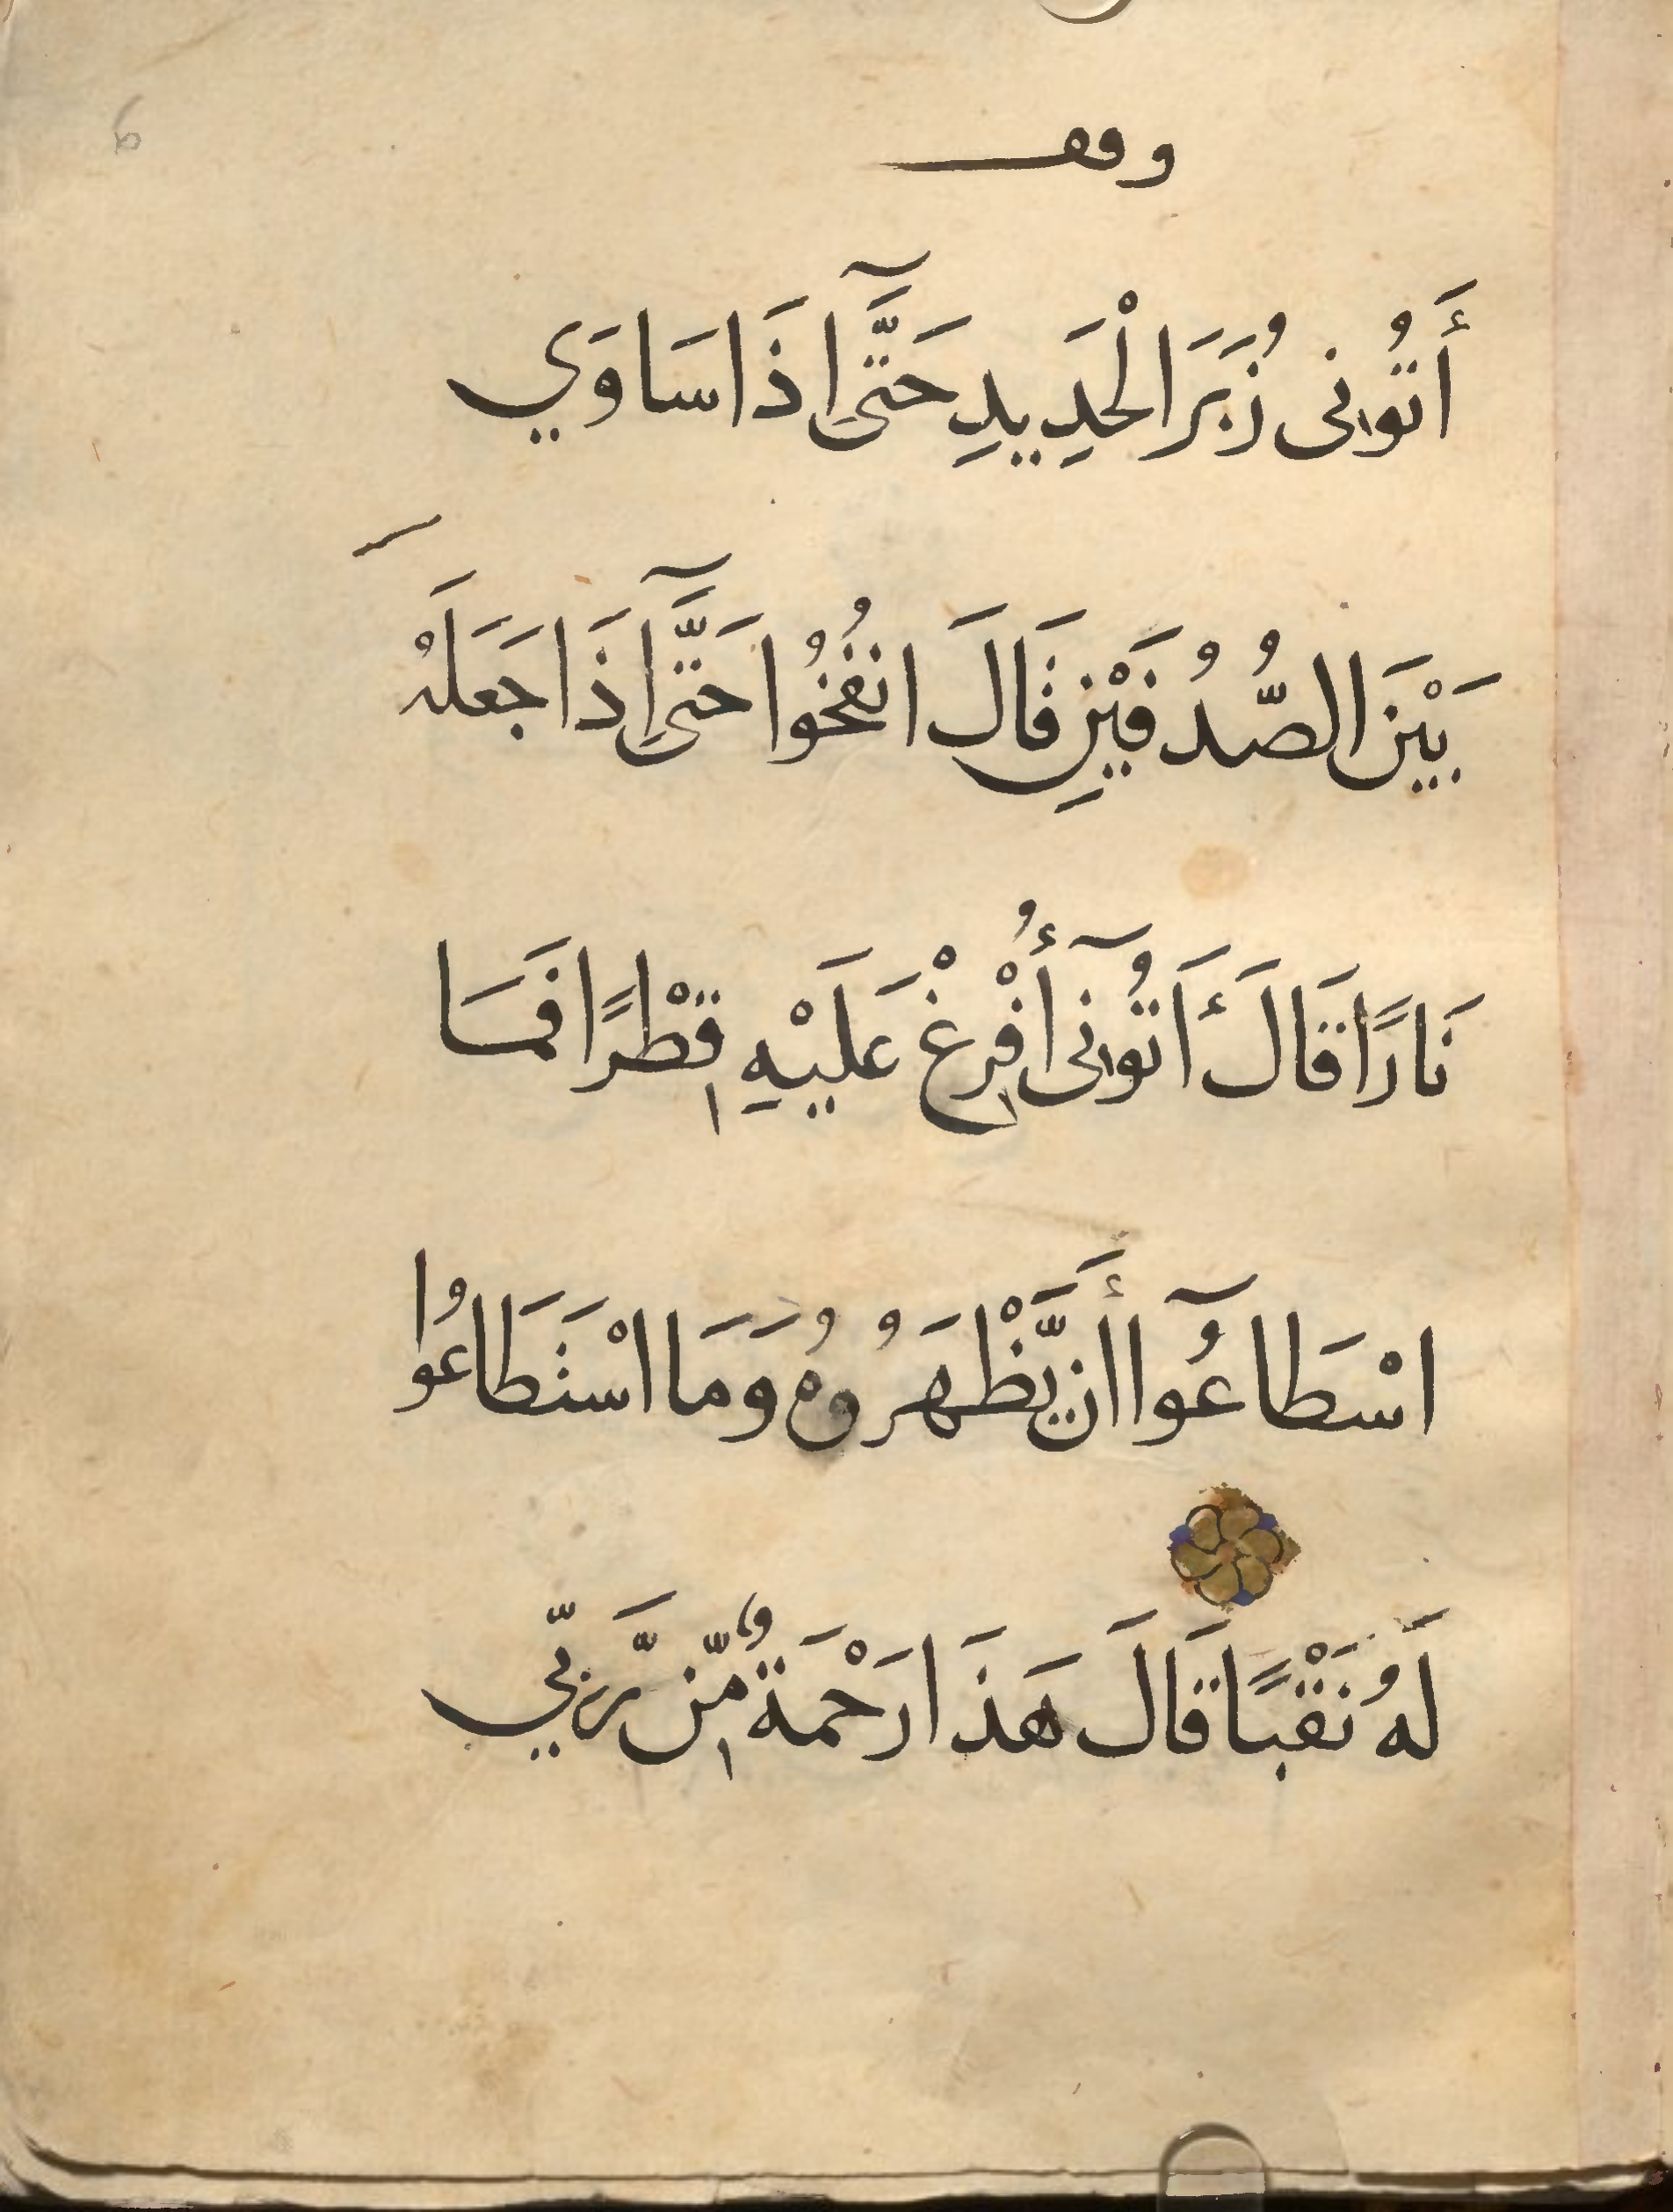 وقف
أَتُونِى زُبَرَ الْحَدِيدِ حَتَّىٰٓ إِذَا سَاوَي
بَيْنَ الصُّدُفَيْنِ قَالَ انفُخُوا حَتَّىٰٓ إِذَا جَعَلَهُ
نَارًا قَالَ ءَاتُونِىٓ أُفْرِغْ عَلَيْهِ قِطْرًا فَمَا
اسْطَاعُوٓا أَن يَّظْهَرُوهُ وَمَا اسْتَطَاعُوا
لَهُ نَقْبًا قَالَ هَذَا رَحْمَةٌ مِّن رَّبّي